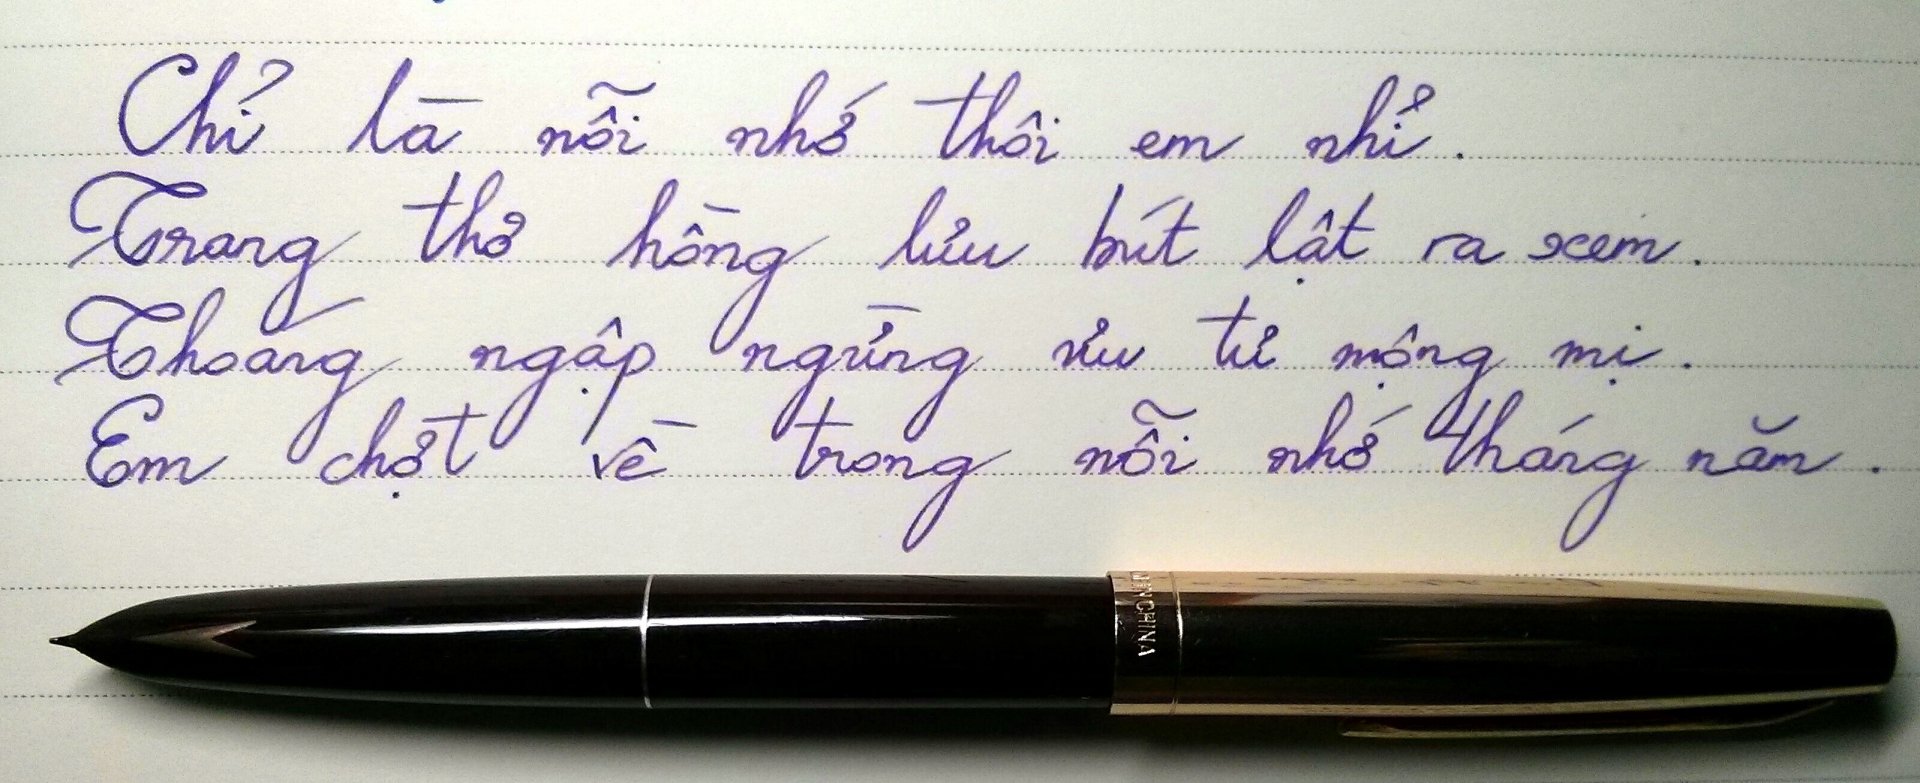 Chỉ là nỗi nhớ thôi em nhỉ.
Trang thơ hồng lưu bút lật ra xem.
Thoáng ngập ngừng ưu tư mộng mị.
Em chợt về trong nỗi nhớ tháng năm.
CHINA